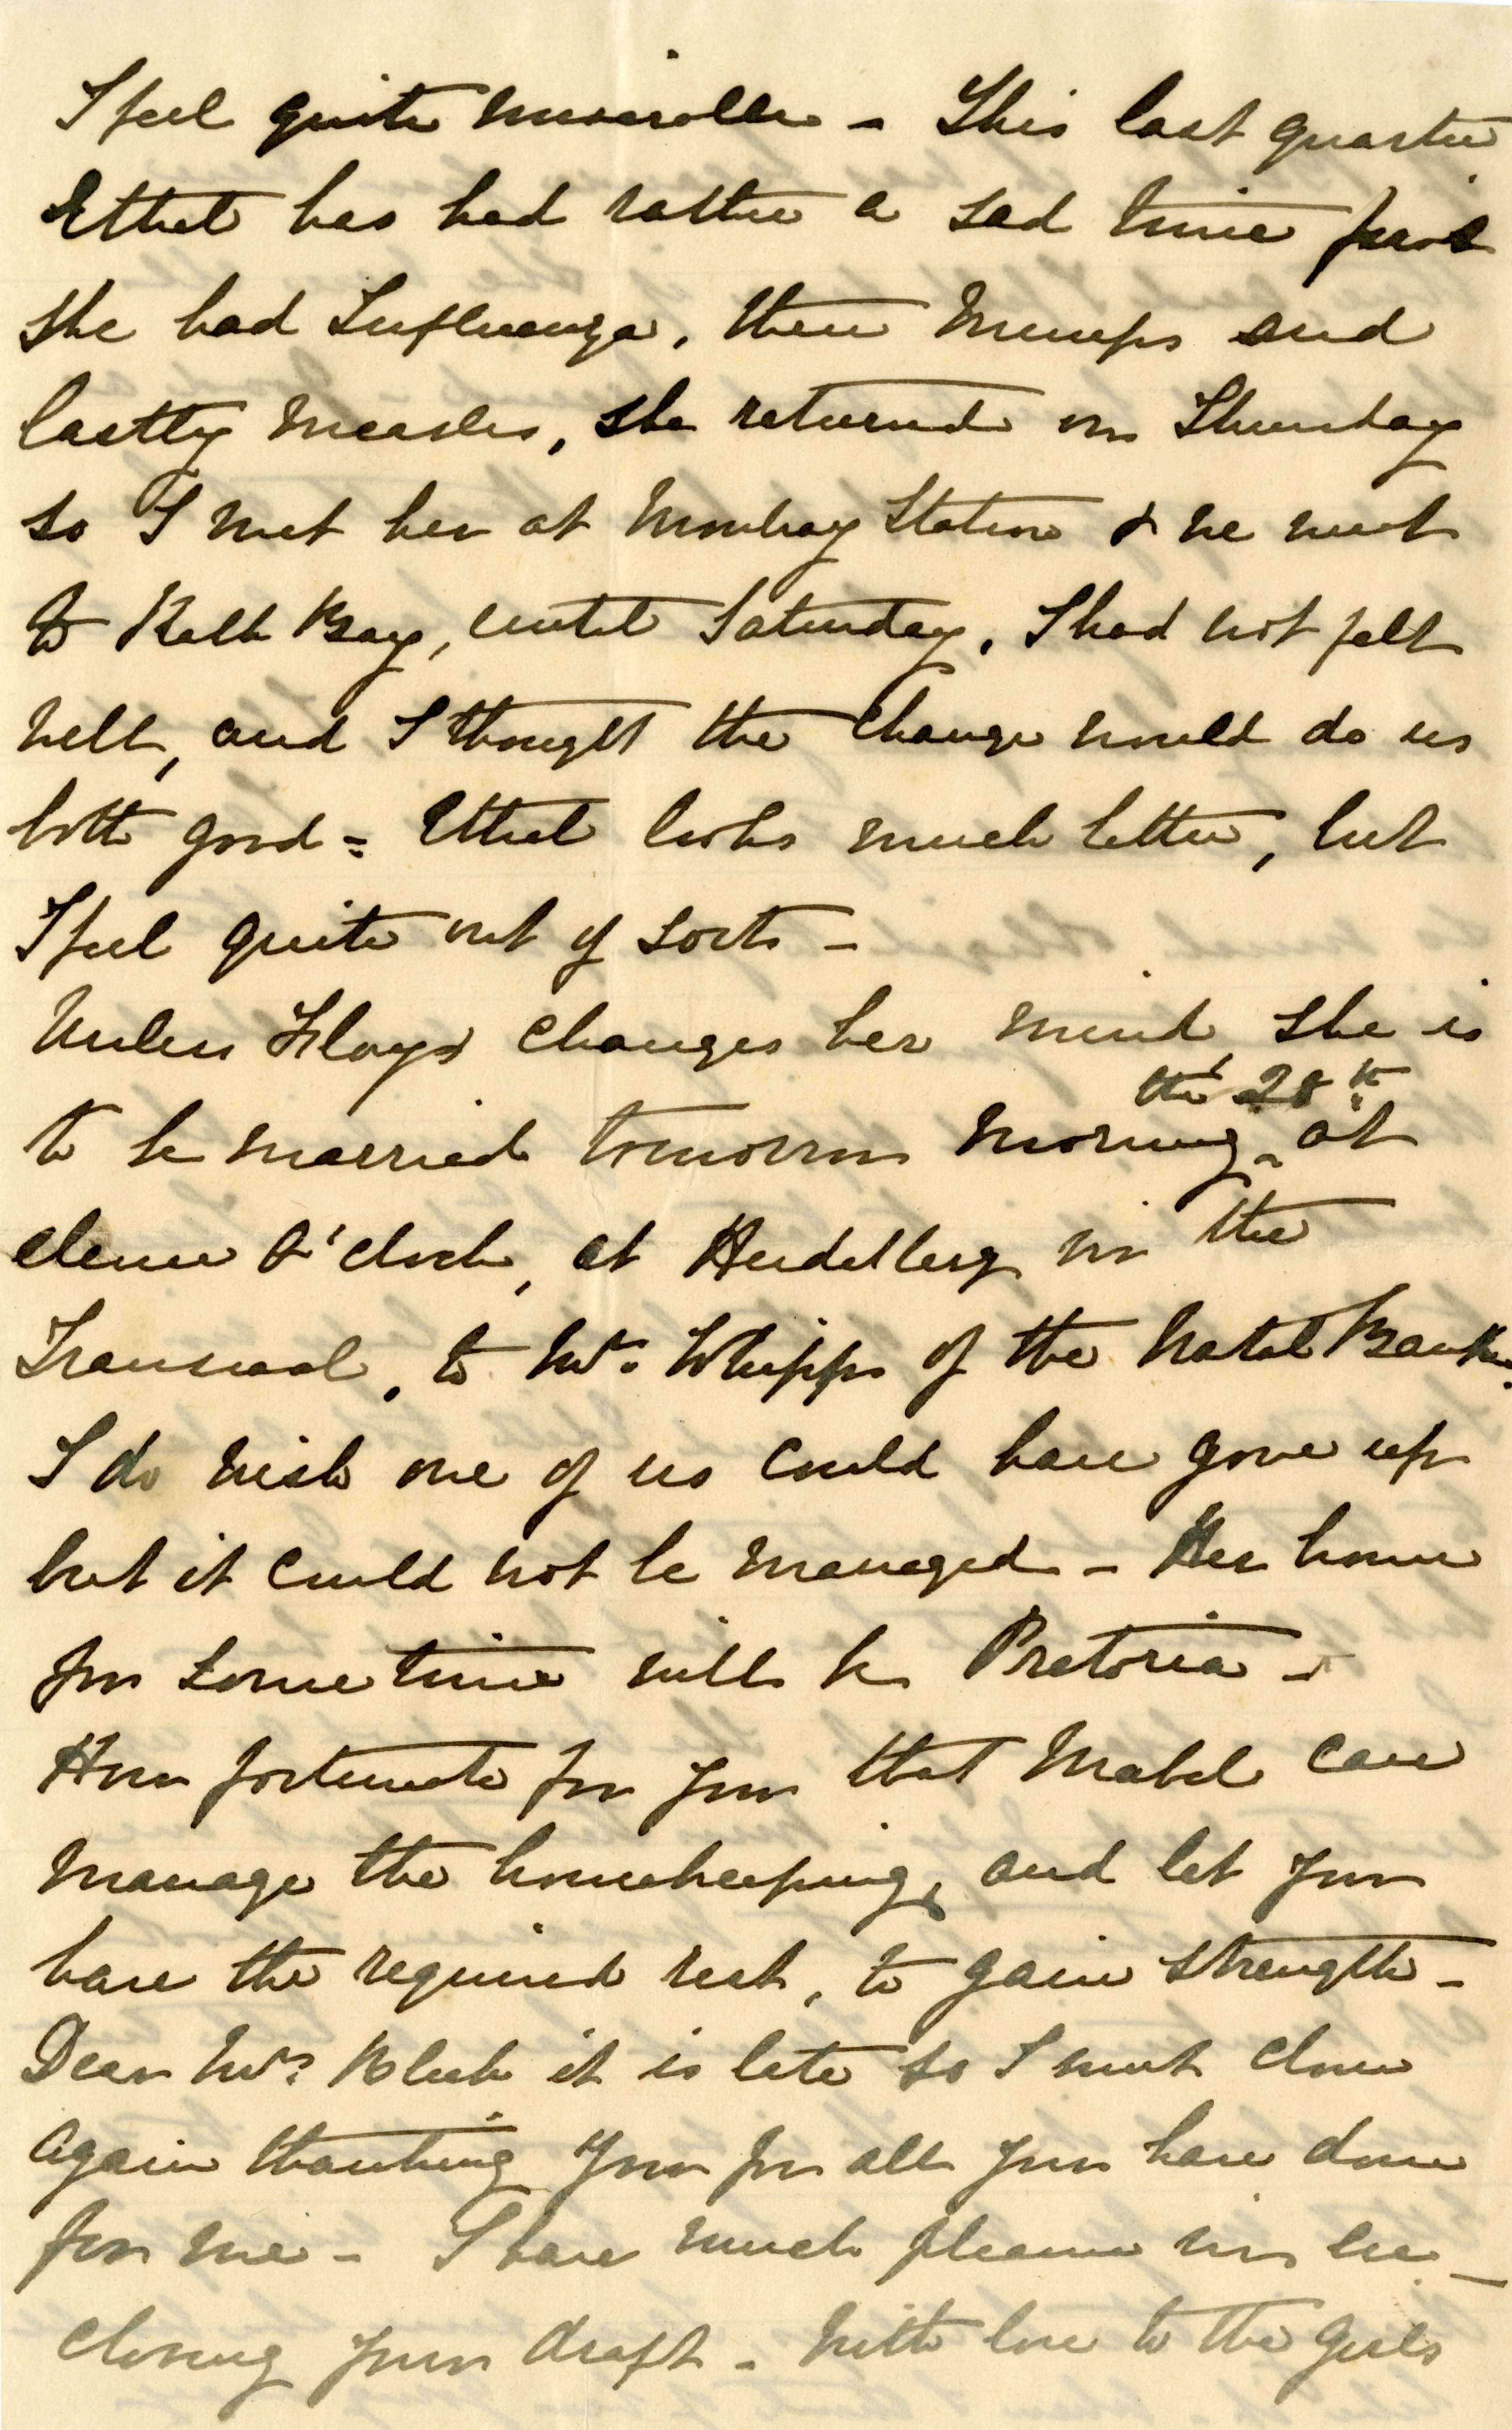 I feel quite miserable - This last quarter
Ethel has had rather a sad time first
she had Influenza, then Mumps and
lastly Measles, she returned on Thursday
so I met her at Mowbray Station & we went
to Kalk Bay, until Saturday. I had not felt
well, and I thought the change would do us
both good = Ethel looks much better, but
I feel quite out of sorts -
Unless changes her mind, she is
the 28th
to be married tomorrow morning - at
eleven O'clock, at Heidelberg in the
Transvaal, to Mr. Whipps of the Natal Bank.
I do wish one of us could have gone up
but it could not be managed - Her home
for some time will be Pretoria -
How fortunate for you that Mabel can
manage the housekeeping, and let you
have the required rest, to gain strength -
Dear Mrs Bleek it is late so I must close
again thanking you for all you have done
for me - I have much pleasure in en_
closing your draft - With love to the girls